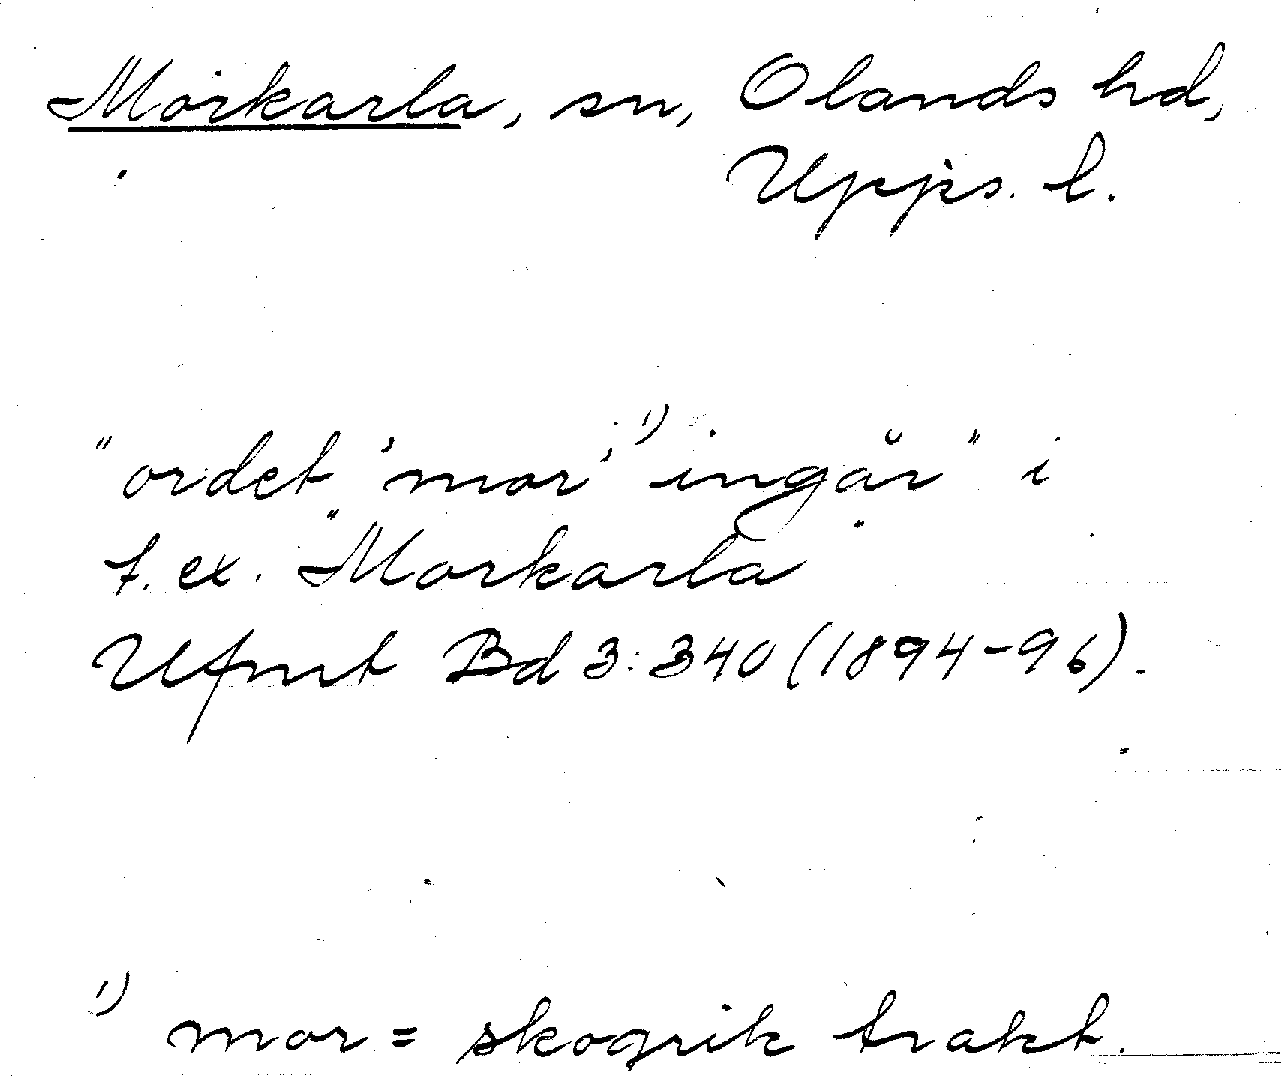 Morkarla, sn, Olands hd,
Upps. l.
"ordet 'mor' ¹) ingår" i
t. ex. "Morkarla"
Ufmt Bd 3:340 (1894-96).
¹) mor = skogrik trakt.